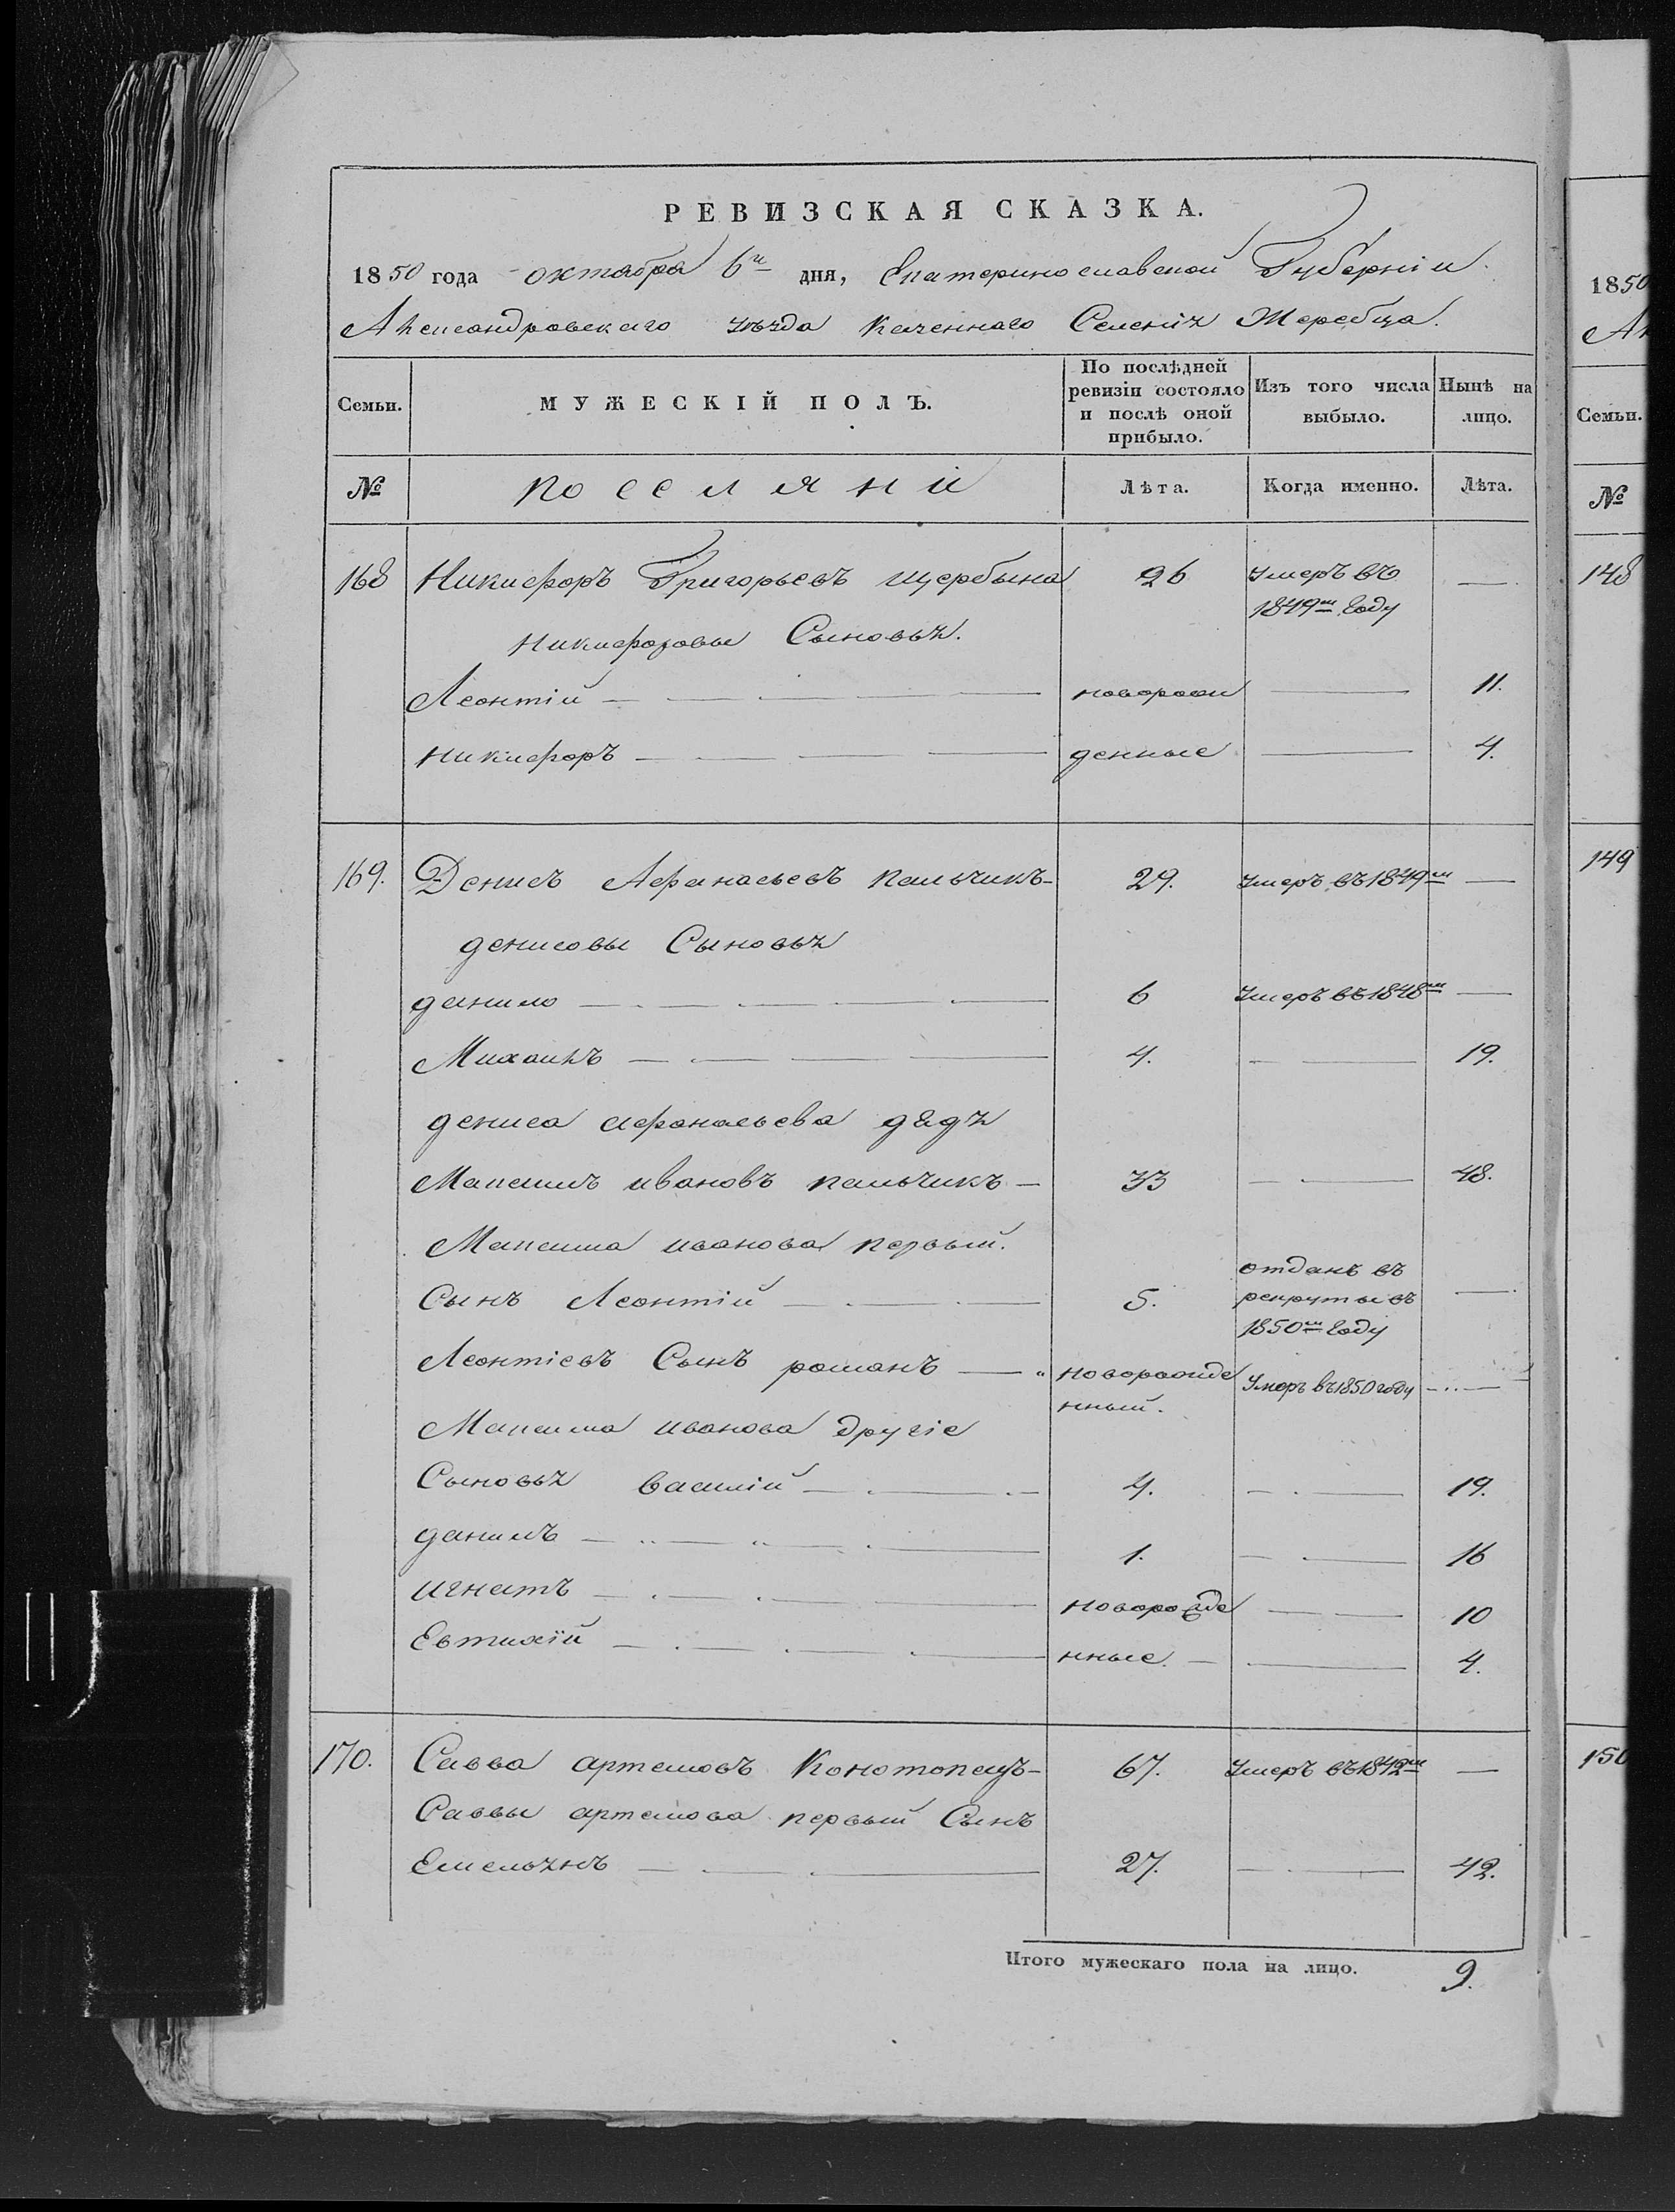 РЕВИЗСКАЯ СКАЗКА.
1850 года октября 6го дня, Екатеринославской Губерніи
Александровскаго уѣзда казеннаго Селенія Жеребца.
Семьи. МУЖЕСКІЙ ПОЛЪ. По послѣдней ревизіи состояло и послѣ оной прибыло. Изъ того числа выбыло. Нынѣ на лицо.
№ поселяни Лѣта. Когда именно. Лѣта.
168 Никифоръ Григорьевъ щербына 26 Умеръ въ 1849м Году —
никифоровы Сыновья.
Леонтій — новорож — 11.
никифоръ — денные — 4.
169. Денисъ Афанасьевъ пальчикъ 29. Умеръ въ 1849м —
денисовы Сыновья
данило — 6 Умеръ въ 1848м —
Михаилъ — 4. — 19.
дениса афанасьева дядя
Максимъ ивановъ пальчикъ — 33 — 48.
Максима иванова первый.
Сынъ Леонтій — 5. отданъ въ рекруты въ 1850м Году —
Леонтіевъ Сынъ романъ — новорожденный. Умеръ въ 1850 году —
Максима иванова другіе
Сыновья василій — 4. — 19.
данилъ — 1. — 16
игнатъ — новорожде — 10
Евтихій — нные. — 4.
170. Савва артемовъ Конотопецъ 67. Умеръ въ 1842м —
Саввы артемова первый Сынъ
Емельянъ — 27. — 42.
Итого мужескаго пола на лицо. 9.
1850
Ал
Семьи.
№
148
149
150